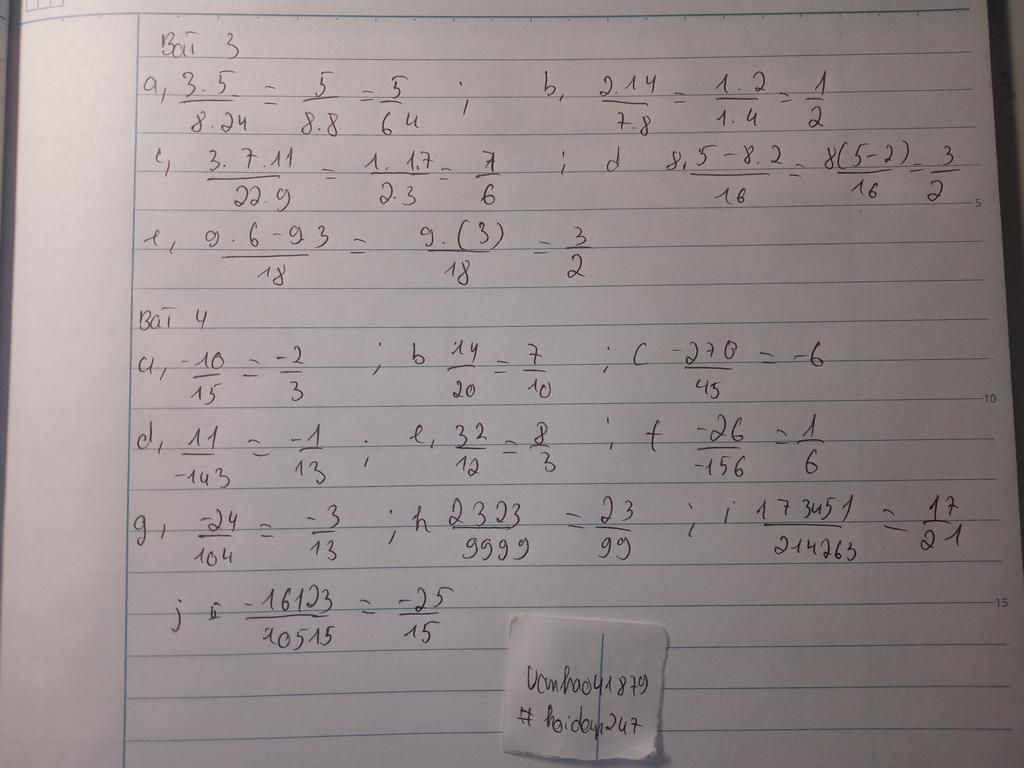 Bài 3
a, 3.5/8.24 = 5/8.8 = 5/64 ; b, 2.14/7.8 = 1.2/1.4 = 1/2
c, 3.7.11/22.9 = 1.1.7/2.3 = 7/6 ; d 8.5-8.2/16 = 8(5-2)/16 = 3/2
e, 9.6-93/18 = 9.(3)/18 = 3/2
Bài 4
a, -10/15 = -2/3 ; b 14/20 = 7/10 ; c -270/45 = -6
d, 11/-143 = -1/13 ; e, 32/12 = 8/3 ; f -26/-156 = 1/6
g, -24/104 = -3/13 ; h 2323/9999 = 23/99 ; i 173451/214263 = 17/21
j -16123/10515 = -25/15
15
10
5
# hoidap247